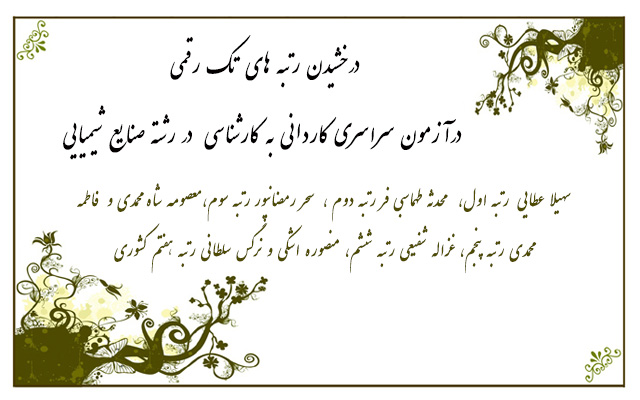 درخشیدن رتبه های تک رقمی
درآزمون سراسری کاردانی به کارشناسی در رشته صنایع شیمیایی
سهیلا عطایی رتبه اول، محدثه طهماسبی فر رتبه دوم ، سحر رمضانپور رتبه سوم،معصومه شاه محمدی و فاطمه
محمدی رتبه پنجم، غزاله شفیعی رتبه ششم، منصوره اشکی و نرگس سلطانی رتبه هفتم کشوری